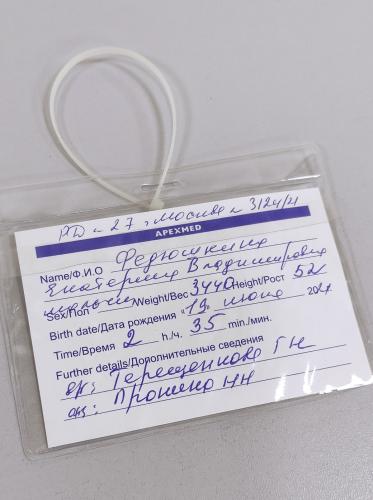 РД № 27 г. Москва № 3124/4
APEXMED
Name/Ф.И.О Федюшкина
Екатерина Владимировна
Sex/Пол мальчик Weight/Вес 3440 Height/Рост 52
Birth date/Дата рождения "19" июня 2024
Time/Время 2 h./ч. 35 min./мин.
Further details/Дополнительные сведения
вр: Терещенкова ГН
ак: НН